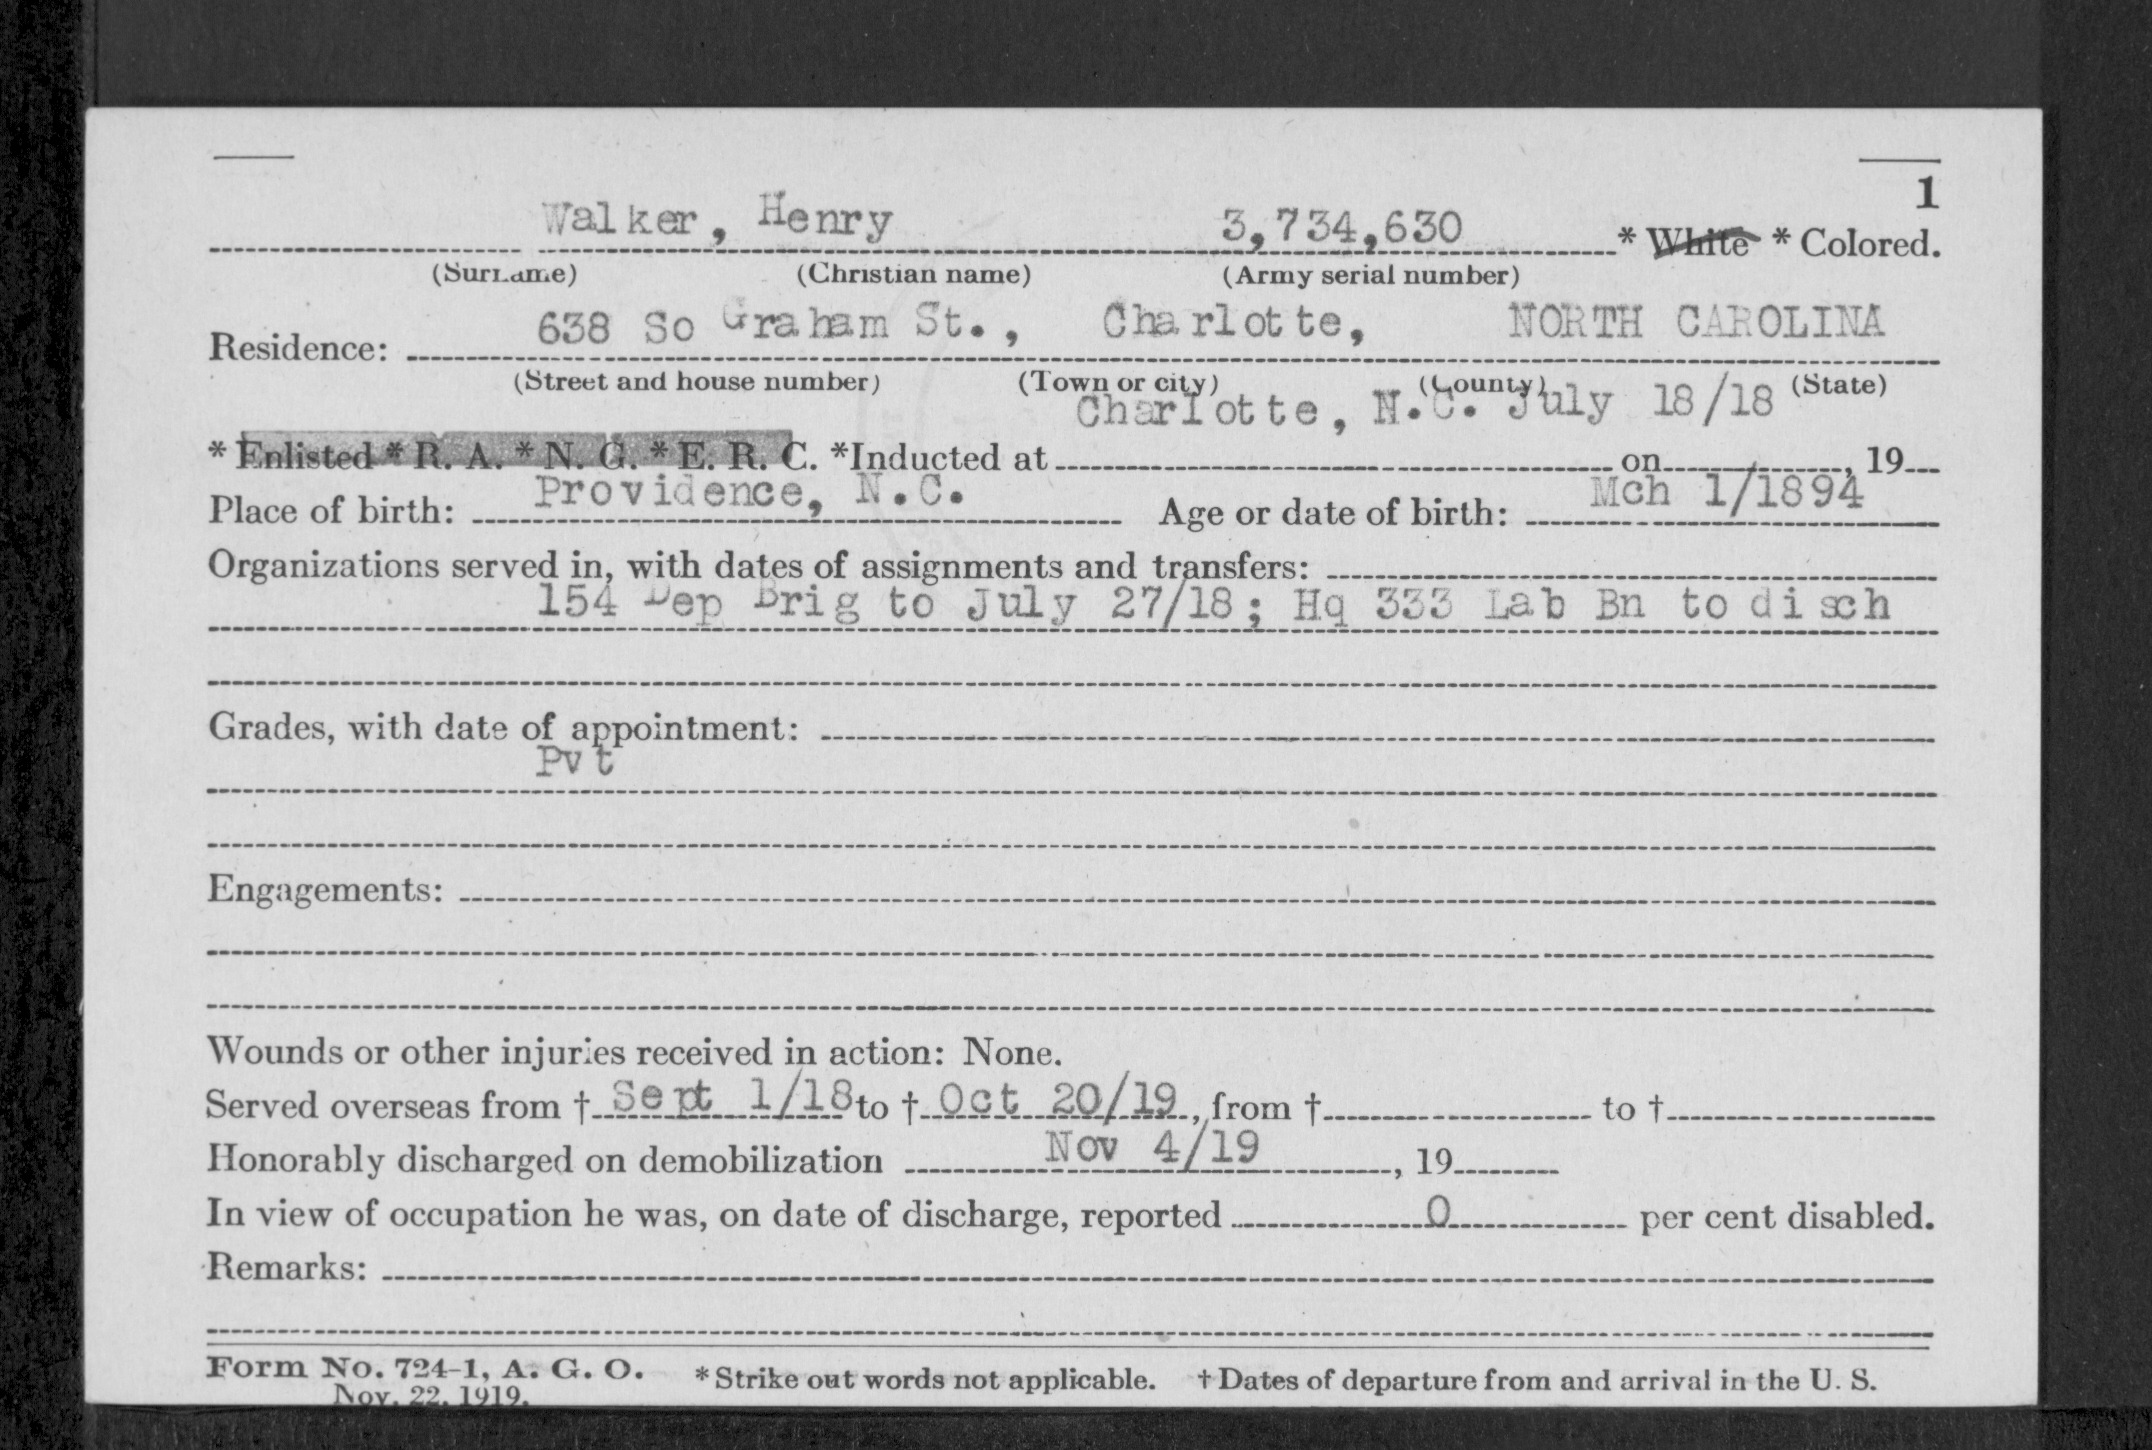 1
Walker, Henry 3,734,630 * White * Colored.
(Surname) (Christian name) (Army serial number)
Residence: 638 So Graham St., Charlotte, NORTH CAROLINA
(Street and house number) (Town or city) (County) (State)
Charlotte, N.C. July 18/18
* Enlisted * R. A. * N. G. * E. R. C. *Inducted at on , 19
Place of birth: Providence, N.C. Age or date of birth: Mch 1/1894
Organizations served in, with dates of assignments and transfers:
154 Dep Brig to July 27/18; Hq 333 Lab Bn to disch
Grades, with date of appointment:
Pvt
Engagements:
Wounds or other injuries received in action: None.
Served overseas from † Sept 1/18 to † Oct 20/19, from † to †
Honorably discharged on demobilization Nov 4/19, 19
In view of occupation he was, on date of discharge, reported 0 per cent disabled.
Remarks:
Form No. 724-1, A. G. O. * Strike out words not applicable. † Dates of departure from and arrival in the U. S.
Nov. 22, 1919.